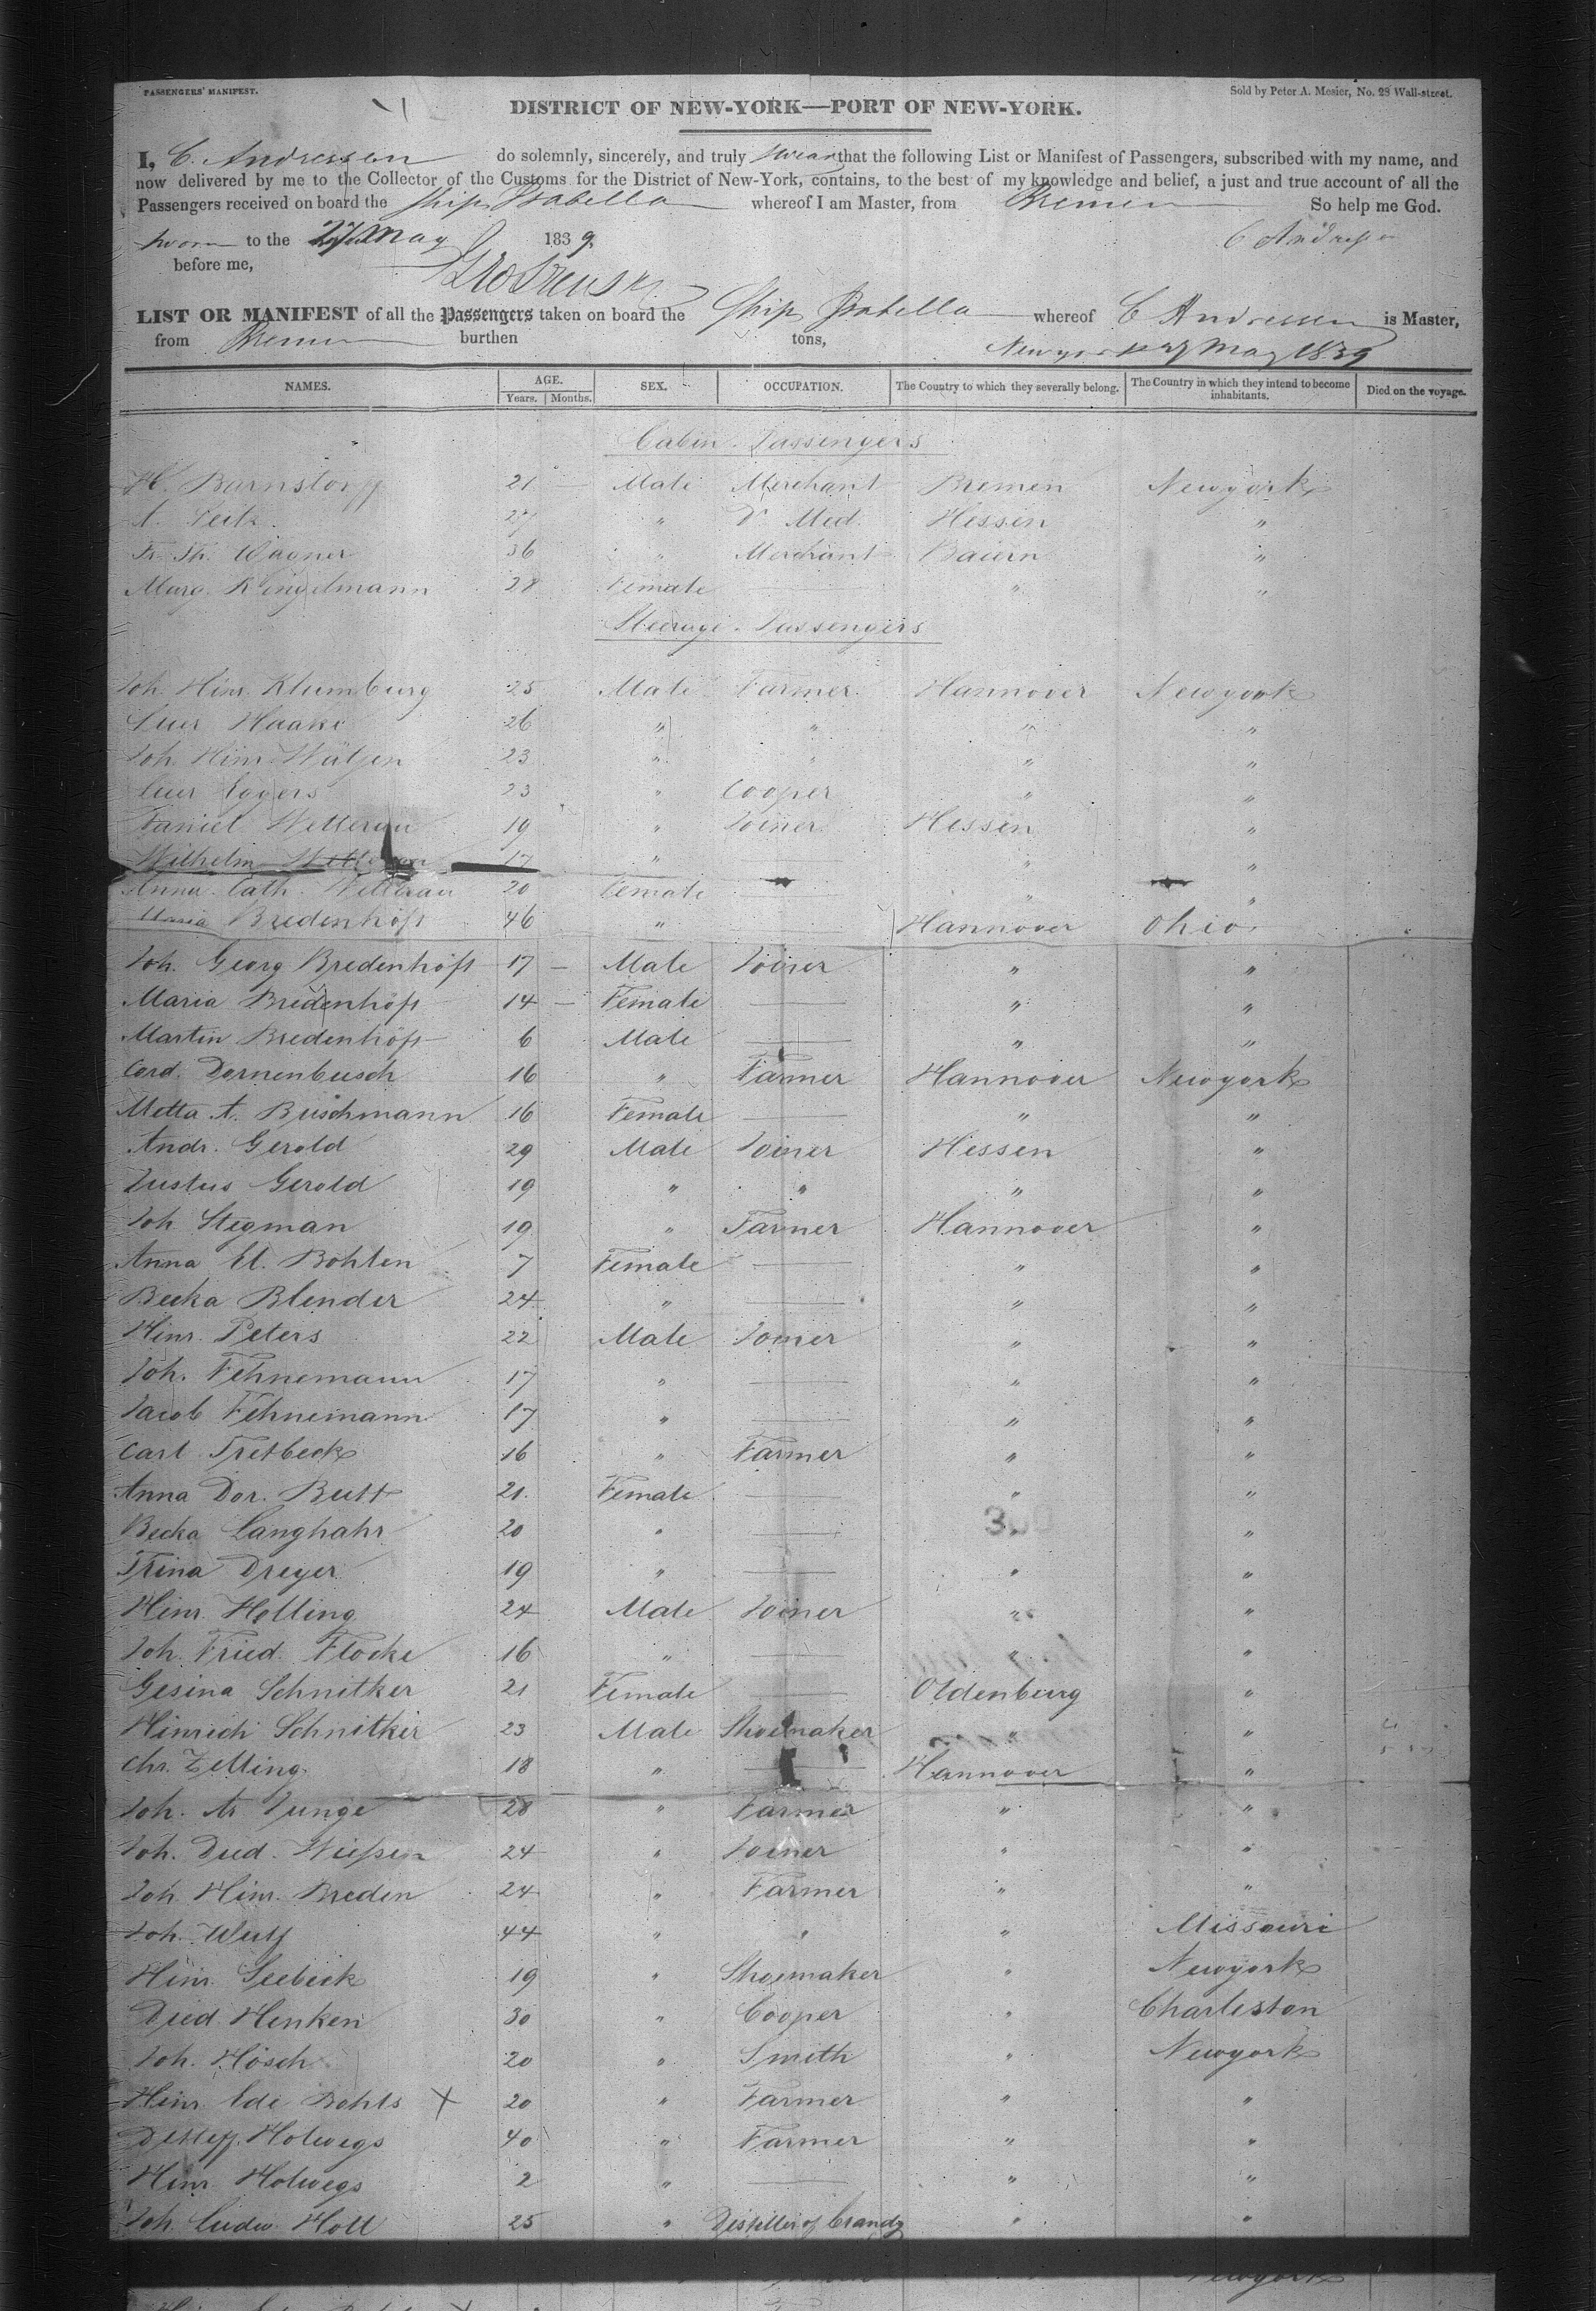 PASSENGERS' MANIFEST.
Sold by Peter A. Mesier, No. 28 Wall-street.
DISTRICT OF NEW-YORK—PORT OF NEW-YORK.
I, C. Andressen do solemnly, sincerely, and truly swear that the following List or Manifest of Passengers, subscribed with my name, and
now delivered by me to the Collector of the Customs for the District of New-York, contains, to the best of my knowledge and belief, a just and true account of all the
Passengers received on board the Ship Isabella whereof I am Master, from Bremen So help me God.
Sworn to the 27 May 1839 C Andressen
before me,
LIST OR MANIFEST of all the Passengers taken on board the Ship Isabella whereof C Andressen is Master,
from Bremen burthen tons, Newyork 27 May 1839
NAMES. AGE. SEX. OCCUPATION. The Country to which they severally belong. The Country in which they intend to become inhabitants. Died on the voyage.
Years. Months.
Cabin Passengers
H. Barnstorff 21 Male Merchant Bremen Newyork
A. 27 " D. Med. Hessen "
Fr. Th. Wagner 36 " Merchant Baiern "
Marg. Klingelmann 28 Female — " "
Steerage Passengers
Joh. Hinr. Klumburg 25 Male Farmer Hannover Newyork
Luer Haake 26 " " " "
Joh. Hinr. Wätjen 23 " " " "
Luer Eggers 23 " Cooper " "
Daniel Wetterau 19 " Joiner Hessen "
Wilhelm Wetterau 17 " " "
Anna Cath. Wetterau 20 Female — " "
Maria Bredenhöft 46 " — Hannover Ohio
Joh. Georg Bredenhöft 17 — Male Joiner " "
Maria Bredenhöft 14 — Female — " "
Martin Bredenhöft 6 Male — " "
Cord. Dornenbusch 16 " Farmer Hannover Newyork
Metta A. Buschmann 16 Female — " "
Andr. Gerold 29 Male Joiner Hessen "
Justus Gerold 19 " " " "
Joh Stegman 19 " Farmer Hannover "
Anna El. Bohlen 7 Female — " "
Becka Blender 24 " — " "
Hinr. Peters 22 Male Joiner " "
Joh. Fehnemann 17 " — " "
Jacob Fehnemann 17 " — " "
Carl Tretbeck 16 " Farmer " "
Anna Dor. Butt 21 Female — " "
Becka Langhahr 20 " — " "
Trina Dreyer 19 " — " "
Hinr. Helling 24 Male Joiner " "
Joh. Fried. Flocke 16 " — " "
Gesina Schnitker 21 Female — Oldenburg "
Hinrich Schnitker 23 Male Shoemaker " "
Chr. Zelling 18 " — Hannover "
Joh. Junge 28 " Farmer " "
Joh. Died. Wiessen 24 " Joiner " "
Joh Hinr. Breden 24 " Farmer " "
Joh. Wulf 44 " " " Missouri
Hinr. Seebeck 19 " Shoemaker " Newyork
Died. Henken 30 " Cooper " Charleston
Joh. Hösch 20 " Smith " Newyork
Hinr Ede Bohls X 20 " Farmer " "
Detleff. Holwegs 40 " Farmer " "
Hinr Holwegs 2 " — " "
Joh. Ludw. Holl 25 " Distiller of brandy " "
Newyork